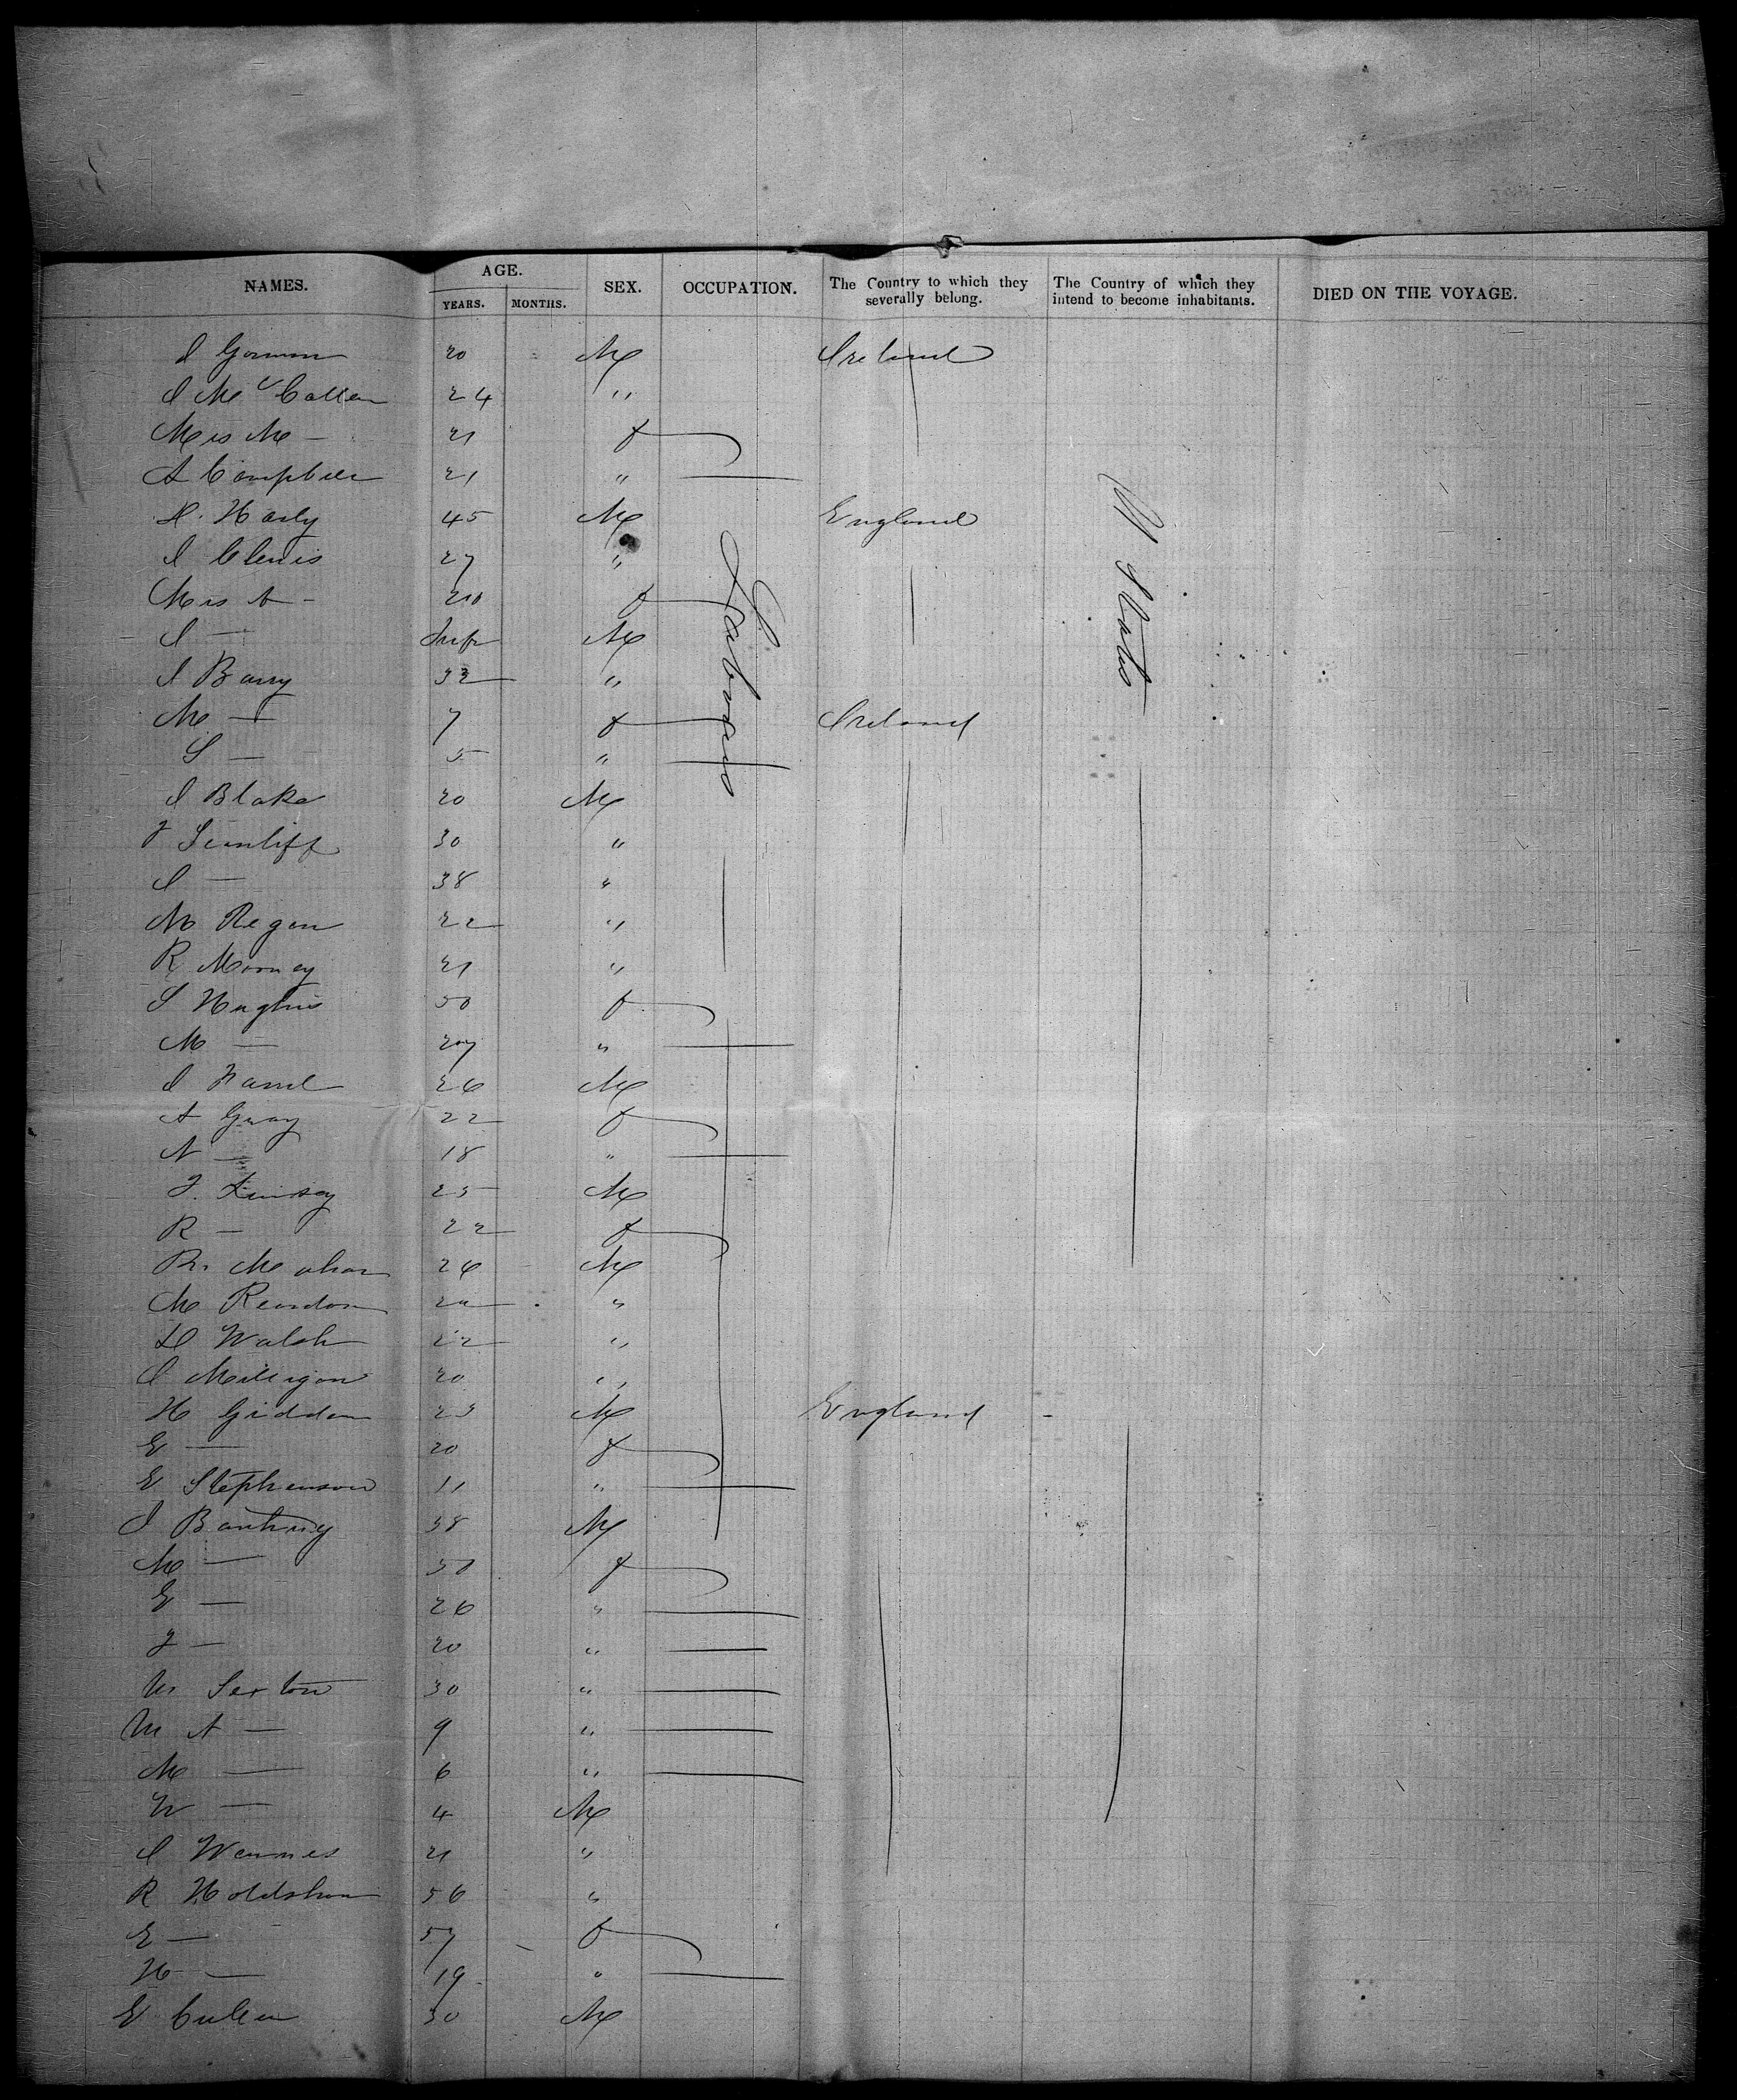 NAMES. AGE. YEARS. MONTHS. SEX. OCCUPATION. The Country to which they severally belong. The Country of which they intend to become inhabitants. DIED ON THE VOYAGE.
J Gorman 20 M Ireland
J McCallen 24 "
Mrs M — 21 f
A Campbell 21 " —
H. Harly 45 M England
J Clewis 27 "
Mrs A — f
J — Inft M
J Barry 32 "
M — 7 f Ireland
S — 5 " —
Labourers
U States
J Blake 20 M
30 "
J — 38 "
M Regan 22 "
R Mooney 21 "
S Hughes 50 f
M — 27 " —
J 26 M
A Gray 22 f
N — 18 " —
J. Kinsey 25 M
R — 22 f
Mahon 26 M
M Reardon "
D Walsh 22 "
J Milligan 20 "
H Giddon 23 M England
E — 20 f
E Stephenson 11 " —
J 38 M
M — 50 f
E — 26 " —
J — 20 " —
M Sexton 30 " —
M A — 9 " —
M — 6 " —
W — 4 M
J 21 "
R 56 "
E — 57 f
H — 19 " —
E Cullen 30 M